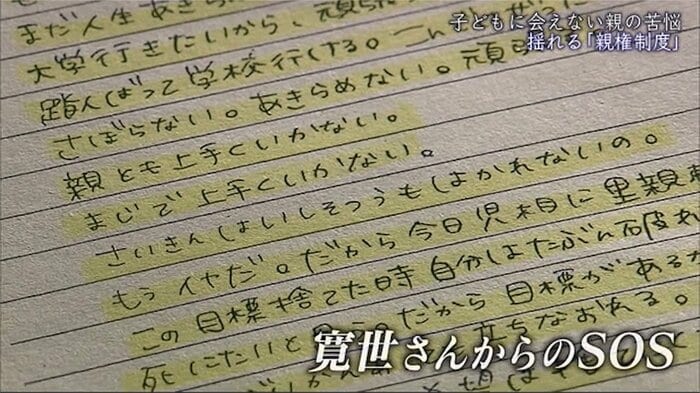 子どもに会えない親の苦悩
揺れる「親権制度」
まだ人生あきら
大学行きたいから、頑張
ばって学校行しする。
さぼらない。あきらめない。頑
親とも上手くいかない。
まじで上手くいかない。
さいきんしはいしそつうもしはかれないの。
もうイヤだ。だから今日児相に里親
この目標捨てた時自分はたぶん石皮
死にたいと だから目標があるか
ちなおれる。
寛世さんからのSOS